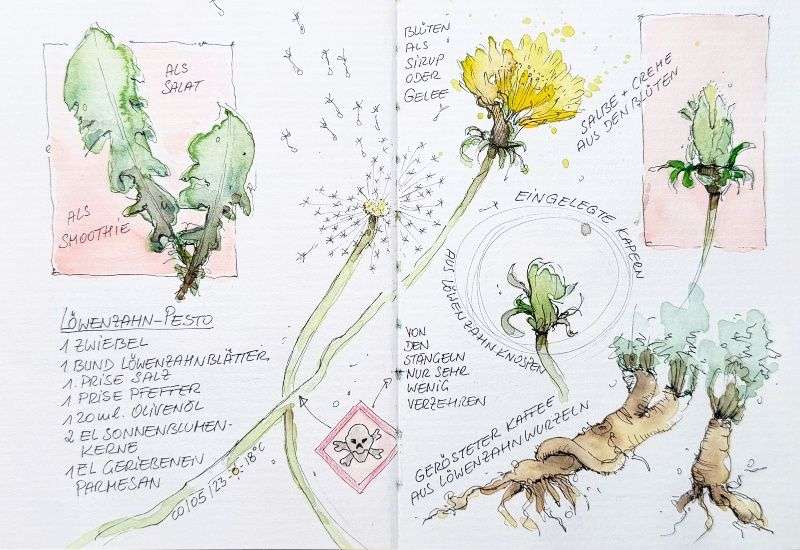 ALS
SALAT
ALS
SMOOTHIE
LÖWENZAHN-PESTO
1 ZWIEBEL
1 BUND LÖWENZAHNBLÄTTER
1 PRISE SALZ
1 PRISE PFEFFER
120 ml. OLIVENÖL
2 EL SONNENBLUMEN-
KERNE
1 EL GERIEBENEN
PARMESAN
BLÜTEN
ALS
SIRUP
ODER
GELEE
SALBE + CREME
AUS DEN BLÜTEN
EINGELEGTE KAPERN
AUS LÖWENZAHNKNOSPEN
VON
DEN
STÄNGELN
NUR SEHR
WENIG
VERZEHREN
GERÖSTETER KAFFEE
AUS LÖWENZAHNWURZELN